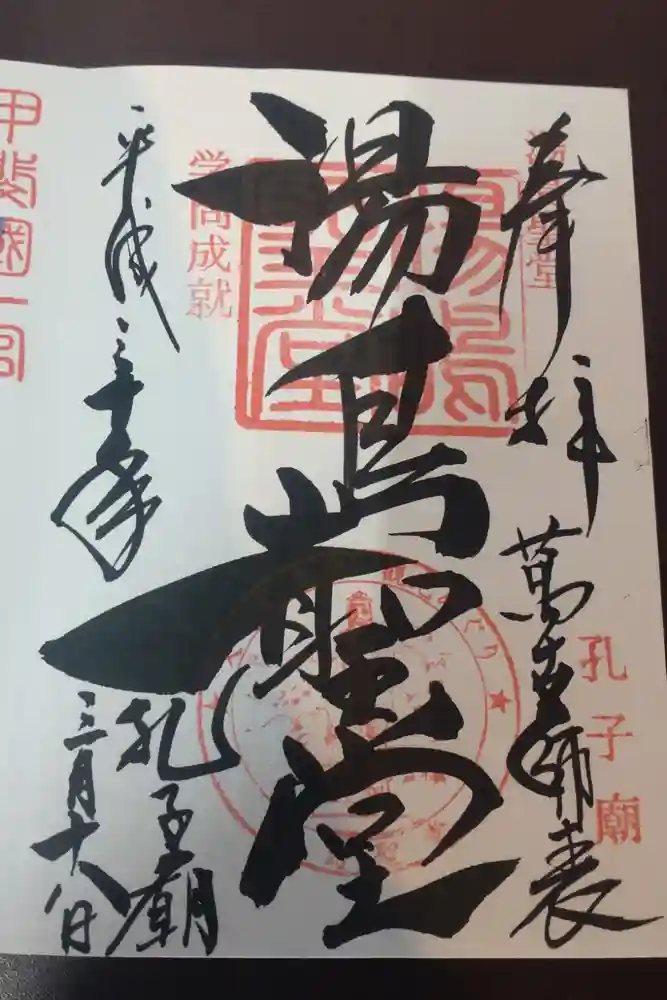 奉拝
萬古師表
湯島聖堂
孔子廟
湯島聖堂
学問成就
平成三十年
三月十八日
孔子廟
甲斐國一宮